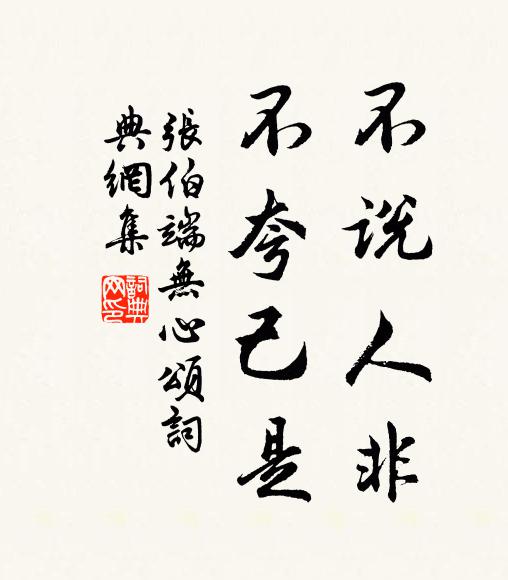 不说人非
不夸己是
張伯端無心頌詞
典網集
詞典
网印